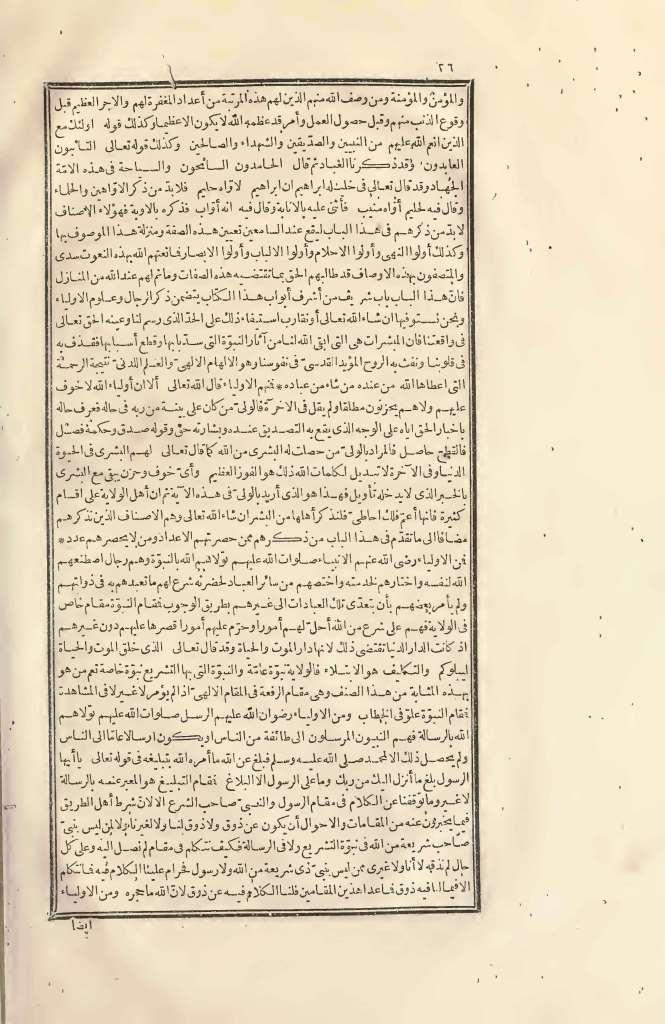 ٢٦
والمؤمن والمؤمنة ومن وصف الله منهم الذين لهم هذه المرتبة من أعداد المغفرة لهم والاجر العظيم قبل
وقوع الذنب منهم وقبل حصول العمل وأمر قد عظمه الله لا يكون الا عظيما وكذلك قوله اولئك مع
الذين انعم الله عليهم من النبيين والصديقين والشهداء والصالحين وكذلك قوله تعالى التائبون
العابدون وقد ذكرنا العباد ثم قال الحامدون السائحون والسياحة في هذه الامّة
الجهاد وقد قال تعالى في خليله ابراهيم ان ابراهيم لاواه حليم فلا بدّ من ذكر الاوّاهين والحلماء
وقال فيه لحليم أوّاه منيب فأثنى عليه بالانابة وقال فيه انه أوّاب فذكره بالاوبة فهؤلاء الاصناف
لا بدّ من ذكرهم في هذا الباب ليقع عند السامعين تعيين هذه الصفة ومنزلة هذا الموصوف بها
وكذلك أولوا النهى وأولوا الاحلام وأولوا الالباب وأولوا الابصار فانعتهم الله بهذه النعوت سدى
والمتصفون بهذه الاوصاف قد طالبهم الحق بما تقتضيه هذه الصفات وما تثم لهم عند الله من المنازل
فانّ هذا الباب باب شريف من أشرف أبواب هذا الكتاب يتضمن ذكر الرجال وعلوم الاولياء
ونحن نستوفيها ان شاء الله تعالى أو نقارب استيفاء ذلك على الحدّ الذي رسم لنا وعينه الحق تعالى
في واقعتنا فان المبشرات هي التي ابقى الله لنا من آثار النبوّة التي سدّ بابها وقطع أسبابها فقذف به
في قلوبنا ونفث به الروح المؤيد القدسيّ في نفوسنا وهو الالهام الالهيّ والعلم اللدنيّ نتيجة الرحمة
التي اعطاها الله من عنده من شاء من عباده * فنهم الاولياء قال الله تعالى ألا ان أولياء الله لا خوف
عليهم ولا هم يحزنون مطلقا ولم يقل في الآخرة فالوليّ من كان على بينة من ربه في حاله فعرف حاله
باخبار الحق اياه على الوجه الذي يقع به التصديق عنده وبشارته حق وقوله صدق وحكمه فصل
فالقطع حاصل فالمراد بالوليّ من حصلت له البشرى من الله كما قال تعالى لهم البشرى في الحيوة
الدنيا وفي الآخرة لا تبديل لكلمات الله ذلك هو الفوز العظيم وأي خوف وحزن يبقى مع البشرى
بالخير الذي لا يدخله تأويل فهذا هو الذي أريد بالوليّ في هذه الآية ثم ان أهل الولاية على اقسام
كثيرة فانها أعمّ فلك احاطيّ فلنذكر أهلها من البشر ان شاء الله تعالى وهم الاصناف الذين نذكرهم
مضافا الى ما تقدّم في هذا الباب من ذكرهم ممن حصرتهم الاعداد ومن لا يحصرهم عدد *
فمن الاولياء رضى الله عنهم الانبياء صلوات الله عليهم تولاهم الله بالنبوّة وهم رجال اصطنعهم
الله لنفسه واختارهم لخدمته واختصهم من سائر العباد لحضرته شرع لهم ما تعبدهم به في ذواتهم
ولم يأمر بعضهم بأن يتعدّى تلك العبادات الى غيرهم بطريق الوجوب فمقام النبوّة مقام خاص
في الولاية فهم على شرع من الله أحلّ لهم أمورا وحرّم عليهم أمورا قصرها عليهم دون غيرهم
اذ كانت الدار الدنيا تقتضى ذلك لانها دار الموت والحياة وقد قال تعالى الذي خلق الموت والحياة
ليبلوكم والتكليف هو الابتلاء فالولاية نبوّة عامّة والنبوّة التي بها التشريع نبوّة خاصة تعم من هو
بهذه المثابة من هذا الصنف وهي مقام الرفعة في المقام الالهيّ اذ لم يؤمر لا غير لا في المشاهدة
فمقام النبوّة علوّ في الخطاب ومن الاولياء رضوان الله عليهم الرسل صلوات الله عليهم تولاهم
الله بالرسالة فهم النبيون المرسلون الى طائفة من الناس أو يكون ارسالا عامّا الى الناس
ولم يحصل ذلك الا لمحمد صلى الله عليه وسلم فبلغ عن الله ما أمره الله بتبليغه في قوله تعالى يا أيها
الرسول بلغ ما أنزل اليك من ربك وما على الرسول الا البلاغ فمقام التبليغ هو المعبر عنه بالرسالة
لا غير وما توقفنا عن الكلام في مقام الرسول والنبيّ صاحب الشرع الا لانّ شرط أهل الطريق
فيما يخبرون عنه من المقامات والاحوال أن يكون عن ذوق ولا ذوق لنا ولا لغيرنا ولا لمن ليس بنبيّ
صاحب شريعة من الله في نبوّة التشريع ولا في الرسالة فكيف نتكلم في مقام لم نصل اليه وعلى كل
حال لم نذقه لا أنا ولا غيرى ممن ليس بنبيّ ذى شريعة من الله ولا رسول فحرام علينا الكلام فيه فما نتكلم
الا فيما لنا فيه ذوق فما عدا هذين المقامين فلنا الكلام فيه عن ذوق لانّ الله ما حجره ومن الاولياء
ايضا